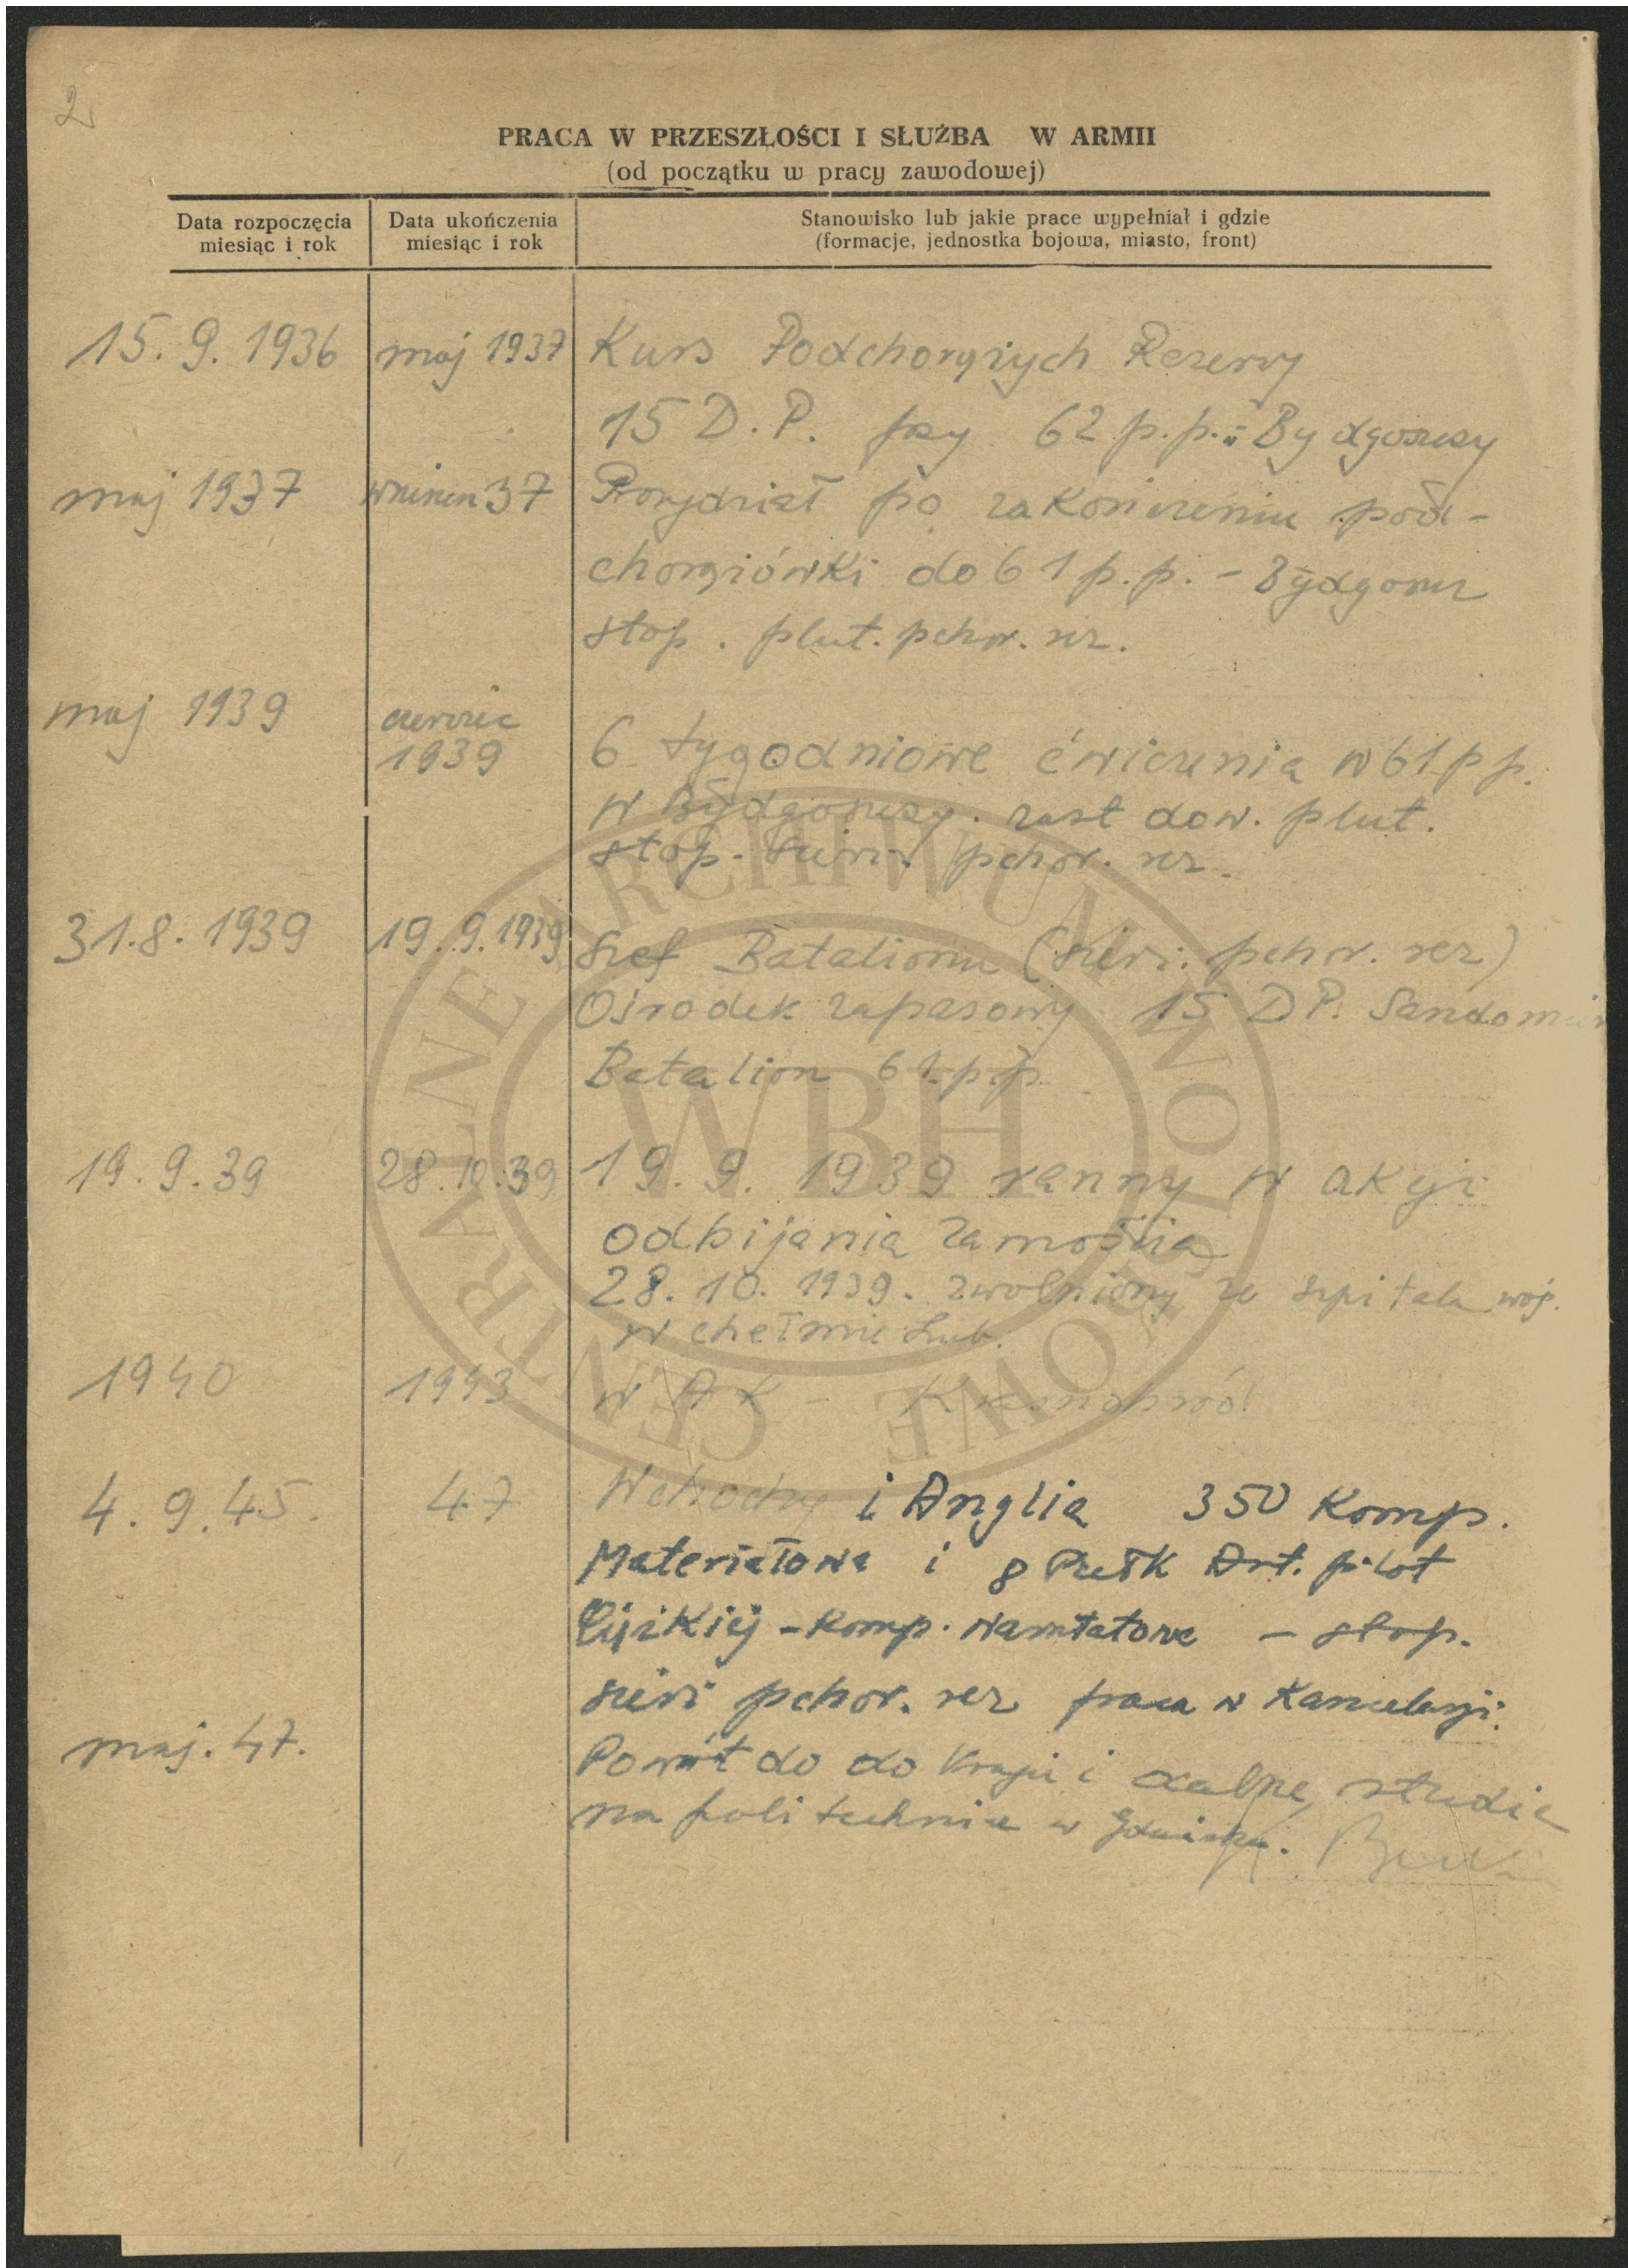 2
PRACA W PRZESZŁOŚCI I SŁUŻBA W ARMII
(od początku w pracy zawodowej)
Data rozpoczęcia miesiąc i rok
Data ukończenia miesiąc i rok
Stanowisko lub jakie prace wypełniał i gdzie
(formacje, jednostka bojowa, miasto, front)
15. 9. 1936 maj 1937 Kurs Podchorążych Rezerwy
15 D. P. przy 62 p.p. w Bydgoszczy
maj 1937 wrzesień 37 Przydział po zakończeniu pod-
chorążówki do 61 p.p. - Bydgoszcz
stop. plut. pchor. rez.
maj 1939 czerwiec 1939 6 tygodniowe ćwiczenia w 61 p p.
w Bydgoszczy. zast dow. plut.
stop. sierż. pchor. rez.
31. 8. 1939 19. 9. 1939 Szef Batalionu (sierż. pchor. rez)
Ośrodek zapasowy 15 D P. Sandomierz
Batalion 61 p.p.
19. 9. 39 28. 10. 39 19. 9. 1939 ranny w akcji
odbijania Zamościa
28. 10. 1939. zwolniony ze szpitala woj.
w chełmie Lub.
1940 1943 w AK - Krasnobród
4. 9. 45. 47 Włochy i Anglia 350 Komp.
Materiałowa i 8 Pułk Art. plot
Ciężkiej - Komp. Warsztatowa - stop.
sierż pchor. rez praca w Kancelarji.
maj. 47. Powrót do do Kraju i dalsze studia
na politechnice w Gdańsku.
CENTRALNE ARCHIWUM WOJSKOWE
WBH